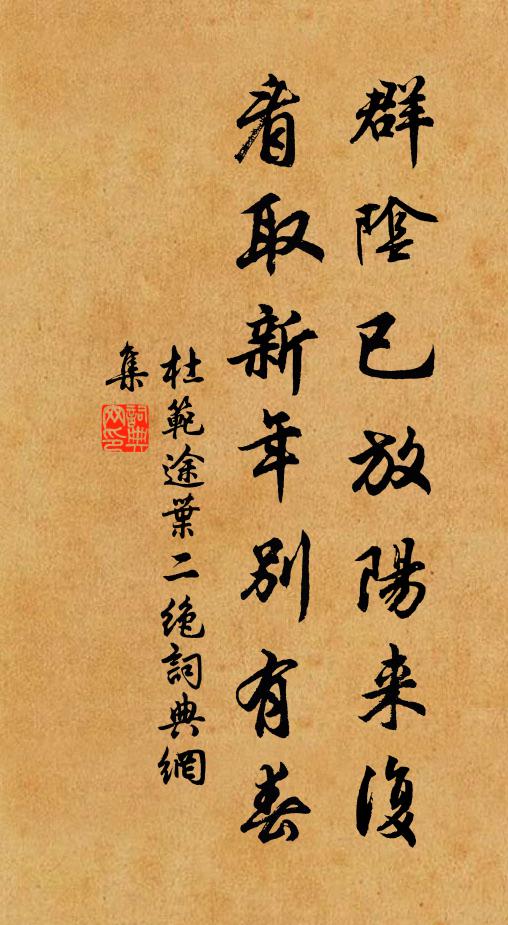 群陰已放陽来復
看取新年別有春
杜範途葉二绝詞典網
集
詞典網印